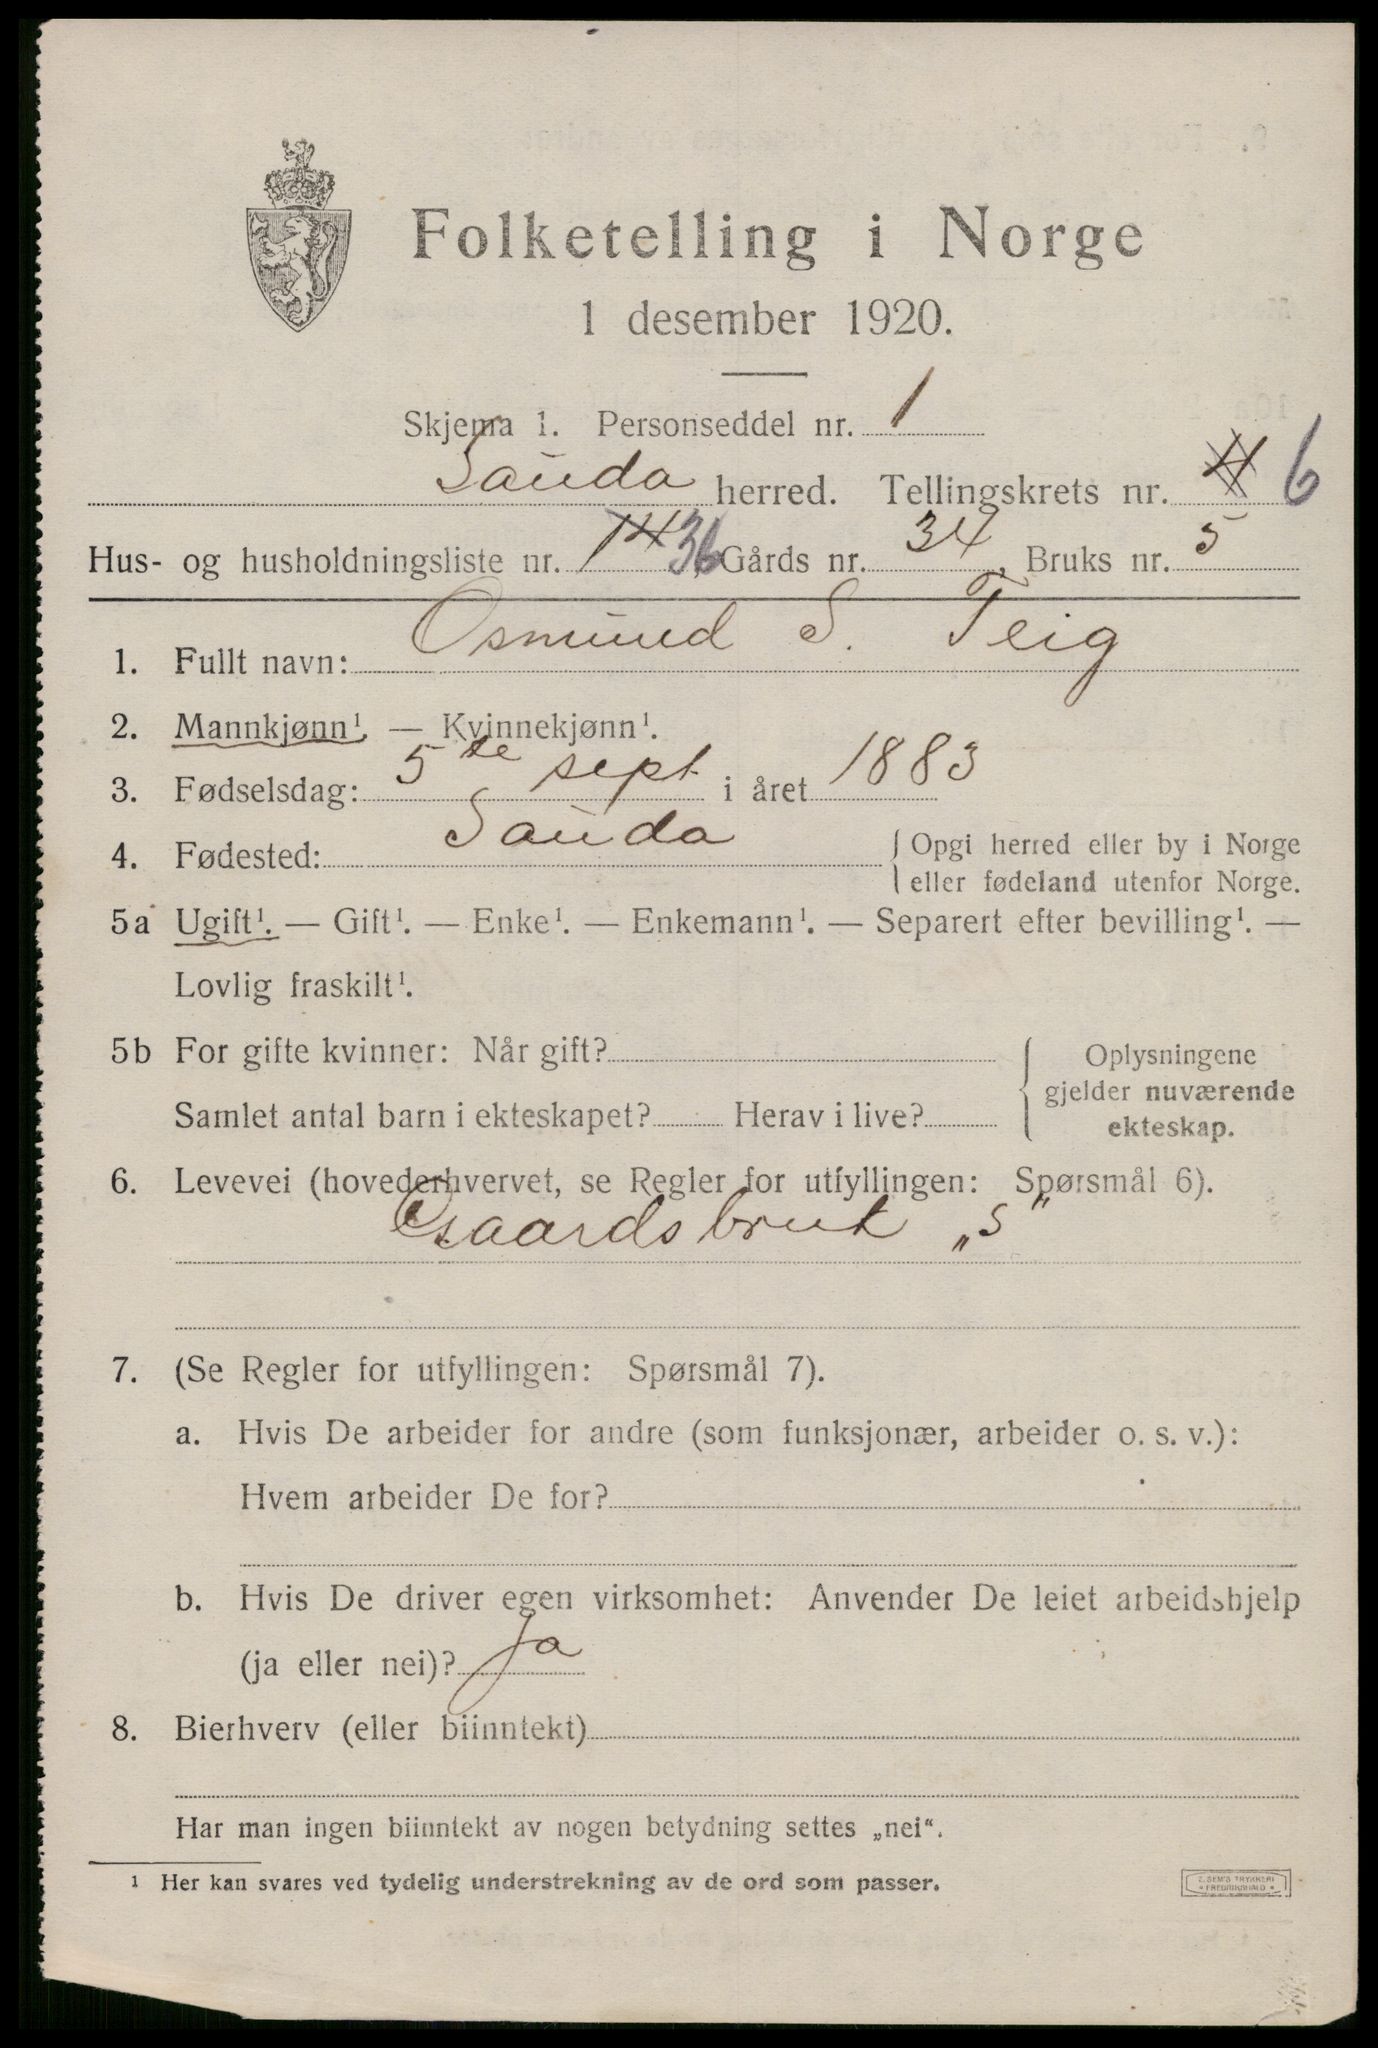 Folketelling i Norge
1 desember 1920.
Skjema 1. Personseddel nr. 1
Sauda herred. Tellingskrets nr. 6
Hus- og husholdningsliste nr. 14 36, Gårds nr. 34, Bruks nr. 5
1. Fullt navn: Osmund S. Teig
2. Mannkjønn¹. — Kvinnekjønn¹.
3. Fødselsdag: 5te sept i året 1883
4. Fødested: Sauda { Opgi herred eller by i Norge
eller fødeland utenfor Norge.
5a Ugift¹. — Gift¹. — Enke¹. — Enkemann¹. — Separert efter bevilling¹. —
Lovlig fraskilt¹.
5b For gifte kvinner: Når gift?
Samlet antal barn i ekteskapet? Herav i live?
{ Oplysningene
gjelder nuværende
ekteskap.
6. Levevei (hovederhvervet, se Regler for utfyllingen: Spørsmål 6).
Gaardsbruk „S“
7. (Se Regler for utfyllingen: Spørsmål 7).
a. Hvis De arbeider for andre (som funksjonær, arbeider o. s. v.):
Hvem arbeider De for?
b. Hvis De driver egen virksomhet: Anvender De leiet arbeidshjelp
(ja eller nei)? Ja
8. Bierhverv (eller biinntekt)
Har man ingen biinntekt av nogen betydning settes „nei“.
¹ Her kan svares ved tydelig understrekning av de ord som passer.
E. SEM'S TRYKKERI
• FREDRIKSHALD •